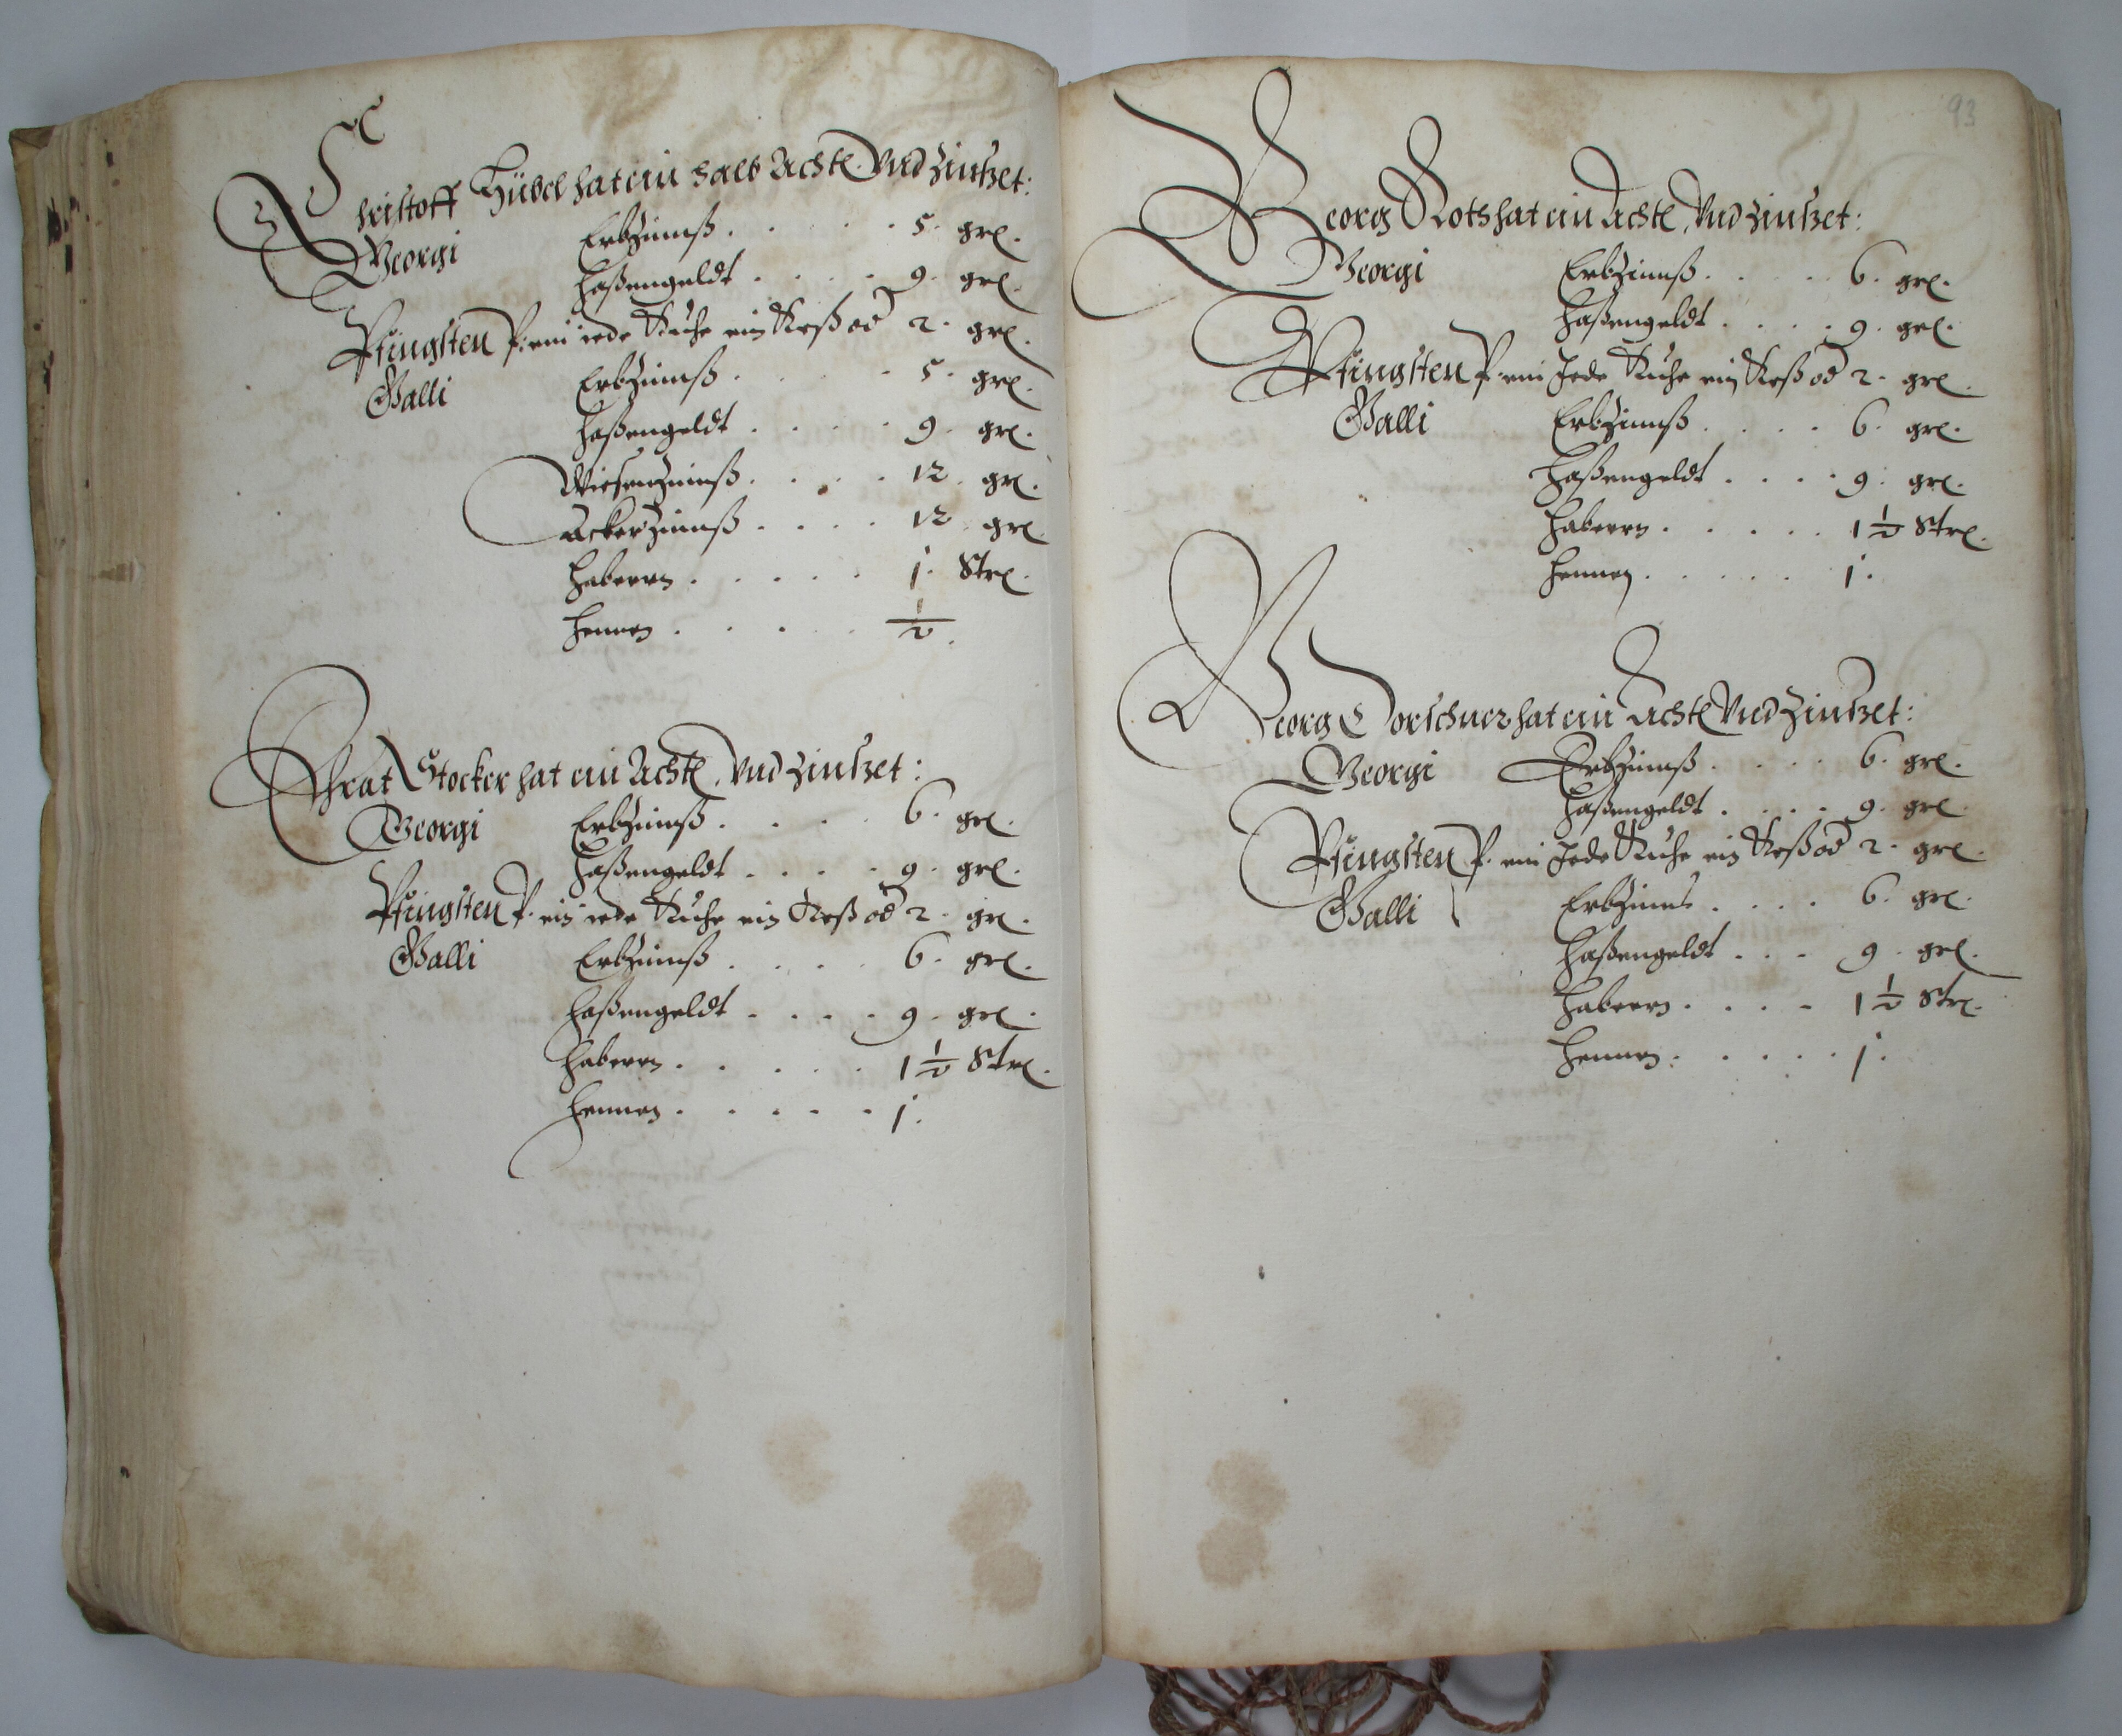 Christoff Hübel hat ein halb Achtl. Vnd Zinßet:
Georgi Erbzinnß . . . . 5. grl.
Haßengeldt . . . . 9. grl.
Pfingsten P. ein iede Kuhe ein Keß od 2. grl.
Galli Erbzinnß . . . . 5. grl.
Haßengeldt . . . . 9. grl.
Wiesenzinnß . . . . 12. grl.
Ackerzinnß . . . . 12. grl.
Habern . . . . . 1. Strl.
Hennen . . . . . 1/2.
Stocker hat ein Achtl. Vnd Zinßet:
Georgi Erbzinnß . . . . 6. grl.
Haßengeldt . . . . 9. grl.
Pfingsten P. ein iede Kuhe ein Keß od 2. grl.
Galli Erbzinnß . . . . 6. grl.
Haßengeldt . . . . 9. grl.
Habern . . . . . 1 1/2 Strl.
Hennen . . . . . 1.
93
Georg hat ein Achtl. Vnd Zinßet:
Georgi Erbzinnß . . . . 6. grl.
Haßengeldt . . . . 9. grl.
Pfingsten P. ein Jede Kuhe ein Keß od 2. grl.
Galli Erbzinnß . . . . 6. grl.
Haßengeldt . . . . 9. grl.
Habern . . . . . 1 1/2 Strl.
Hennen . . . . . 1.
Georg Dorschner hat ein Achtl Vnd Zinßet:
Georgi Erbzinnß . . . . 6. grl.
Haßengeldt . . . . 9. grl.
Pfingsten P. ein Jede Kuhe ein Keß od 2. grl.
Galli Erbzinns . . . . 6. grl.
Haßengeldt . . . 9. grl.
Habern . . . . 1 1/2 Strl.
Hennen . . . . . 1.